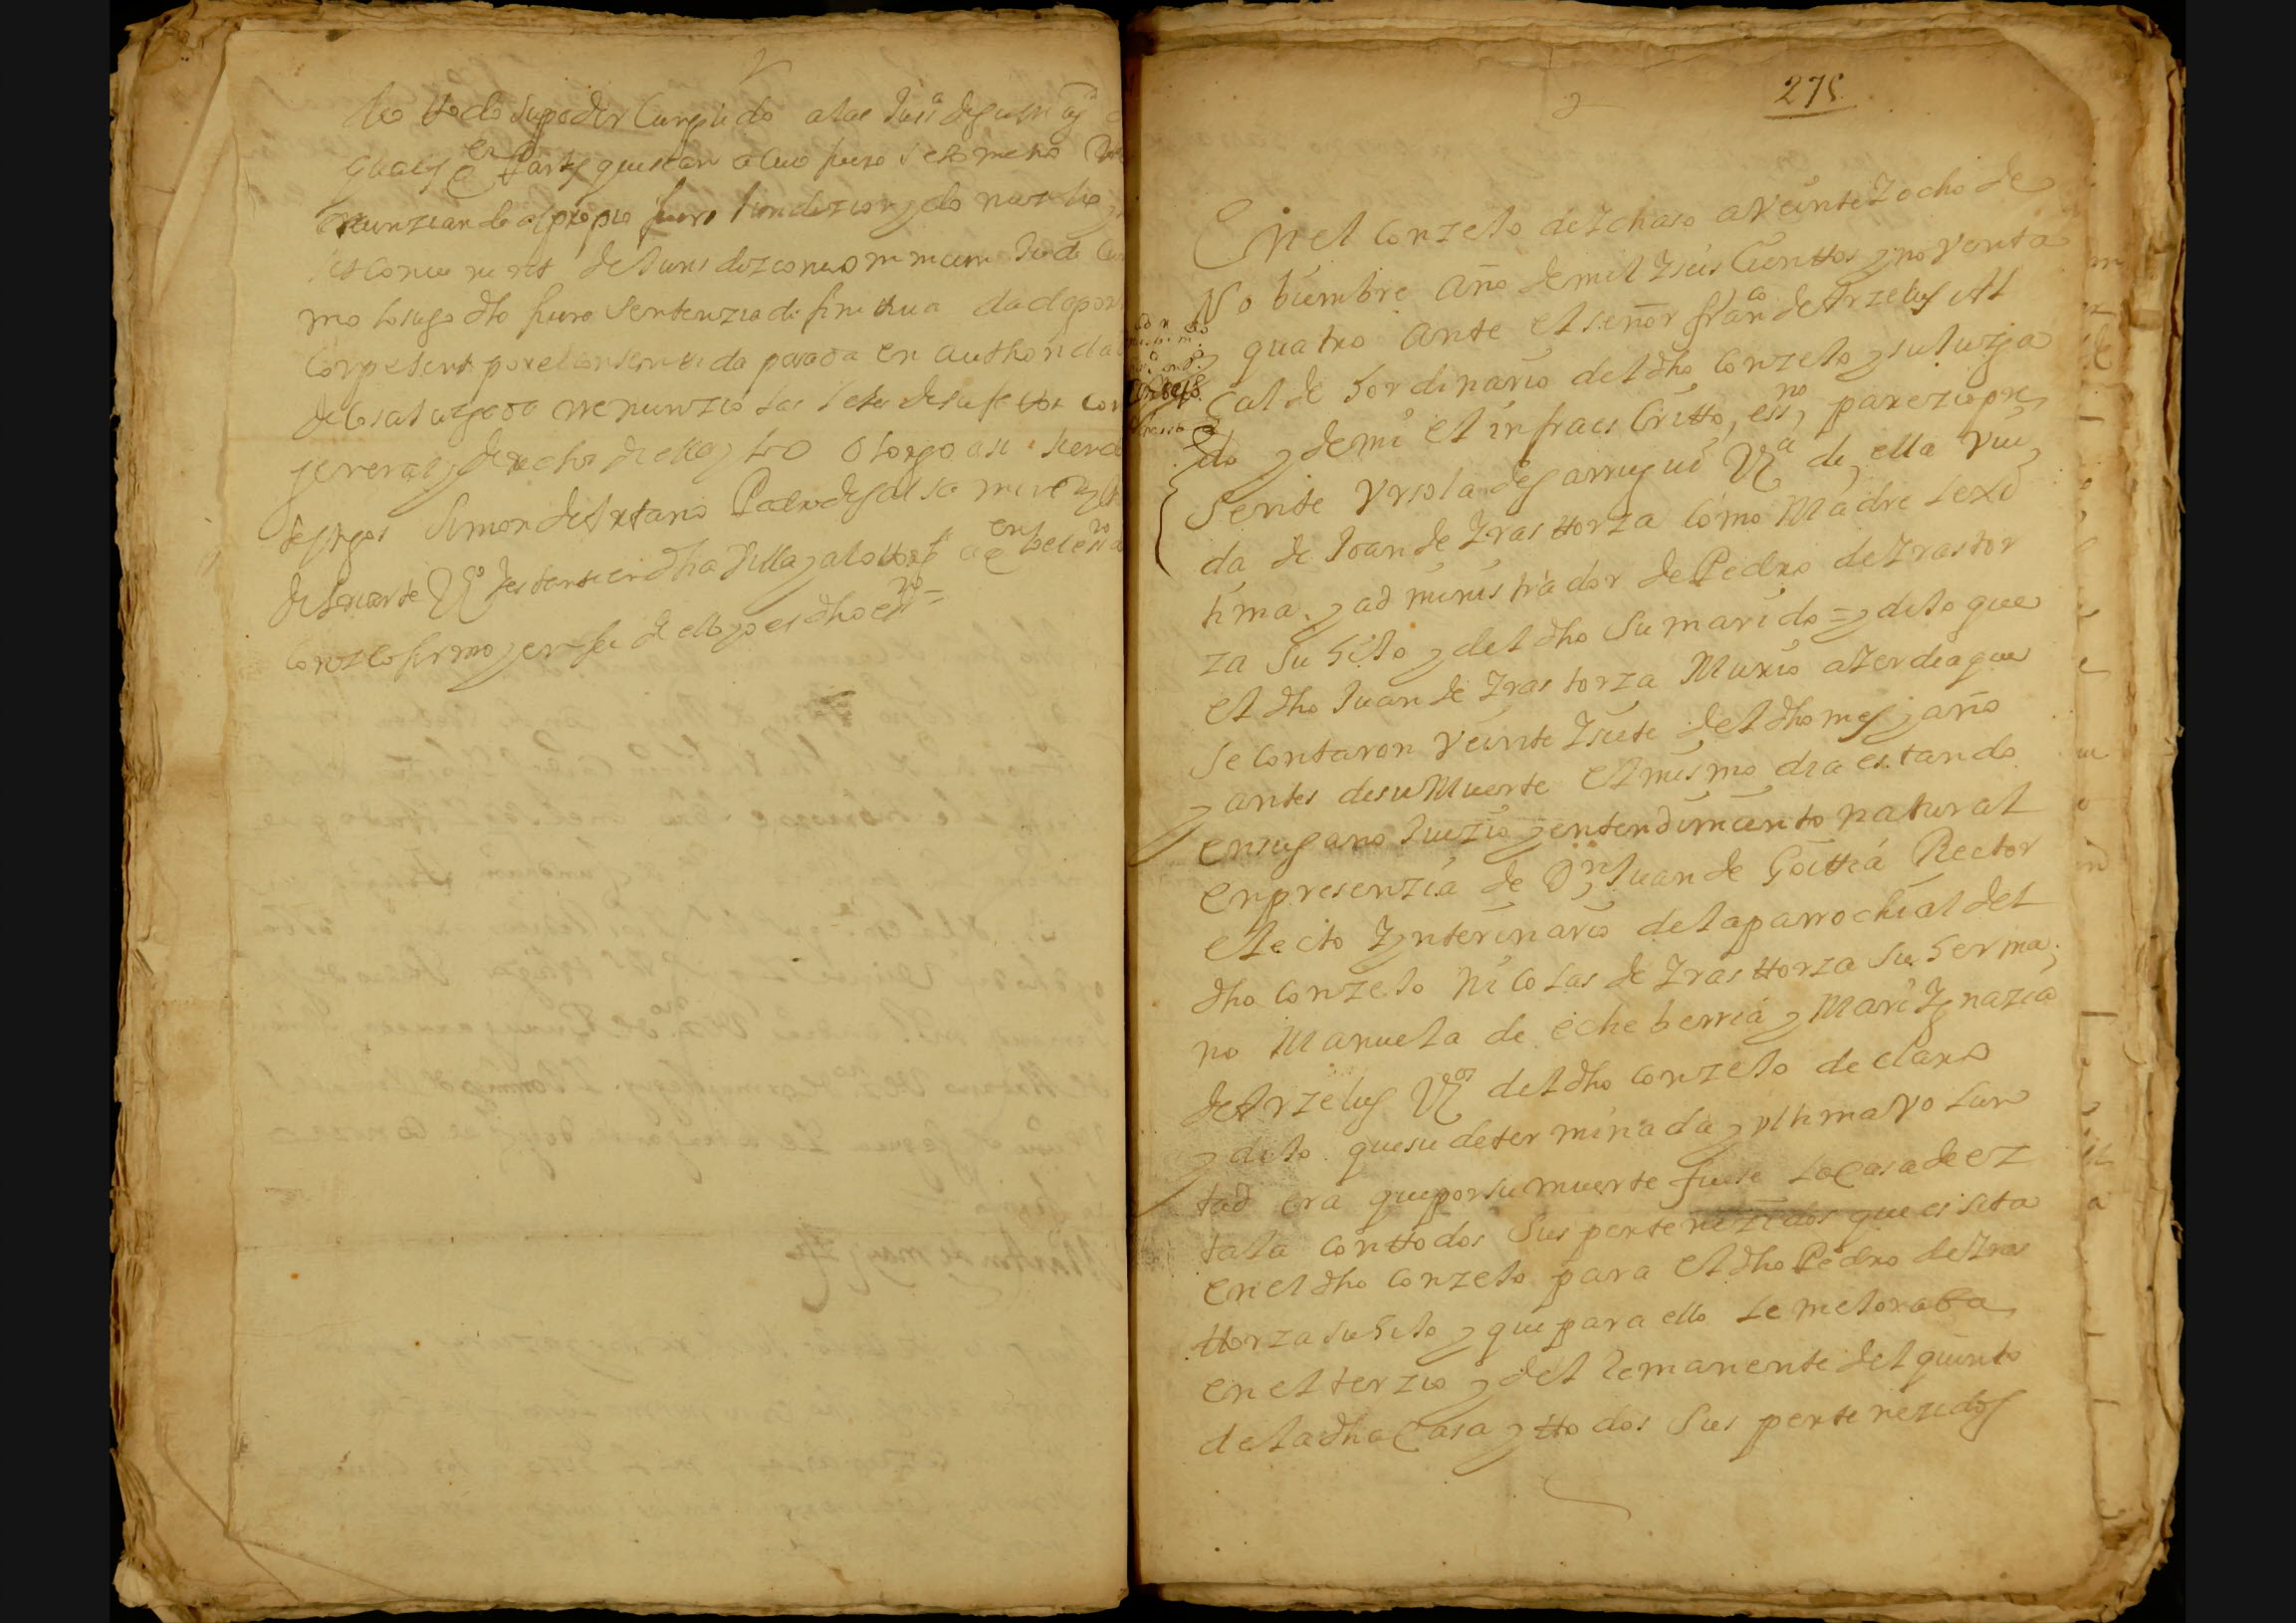 dio todo su poder Cumplido alas Jusª de su mgᵈ
quales q̃ Partes que sean a cuio fuero se sometio
rrenunziando el propio fuero Jurisdizion y domizilio y
sit conuenerit de Jurisdizione omnium Judicum
mo lo sugo dho fuera sentenzia difinitiua dada por
Conpetente por el consentida pasada en authorida
de cosa Juzgada rrenunzio las Leies de su fauor con
general y derechos de ella y lo otorgo asi siendo
testigos Simon de Artano Pedro de
de Iriarte Vᵒˢ y estantes en dha Villa y al otorgᵗᵉ
Conozco firmo y en fe de ello yo el dho esnᵒ =
275
En el Conzejo de Ichaso a Veinte y ocho de
No biembre año de mil y seis Cienttos y no Venta
y quatro ante el señor franᶜᵒ de Arzelus Al
Cal de hordinario del dho Conzejo y su Juzga
do y de mi el infraes Critto, essnᵒ, parezio pre
Sente Vrsola de Garrugui Vᶻᵃ de ella Viu
da de Joan de Yrastorza Como Madre lexi
tima, y administrador de Pedro de Yrastor
za su hijo y del dho Su marido = y dijo que
el dho Juan de Yrastorza Murio aier dia que
Se Contaron Veinte y siete del dho mes y año
y antes de su Muerte el mismo dia estando
en su sano Juizio y entendimiento natural
en presenzia de Dⁿ Juan de Goittia Rector
electo Ynterinario de la parrochial del
dho Conzejo Nicolas de Yrasttorza Su herma
no Manuela de eche berria y Mari Ygnazia
de Arzelus Vᶻᵒˢ del dho Conzejo declaro
y dijo que su determinada y vltima Volun
tad era que por su muerte fuese la Casa de ez
tala Con ttodos Sus pertenezidos que es sita
en el dho Conzejo para el dho Pedro de Yras
ttorza Su hijo y que para ello le mejoraba
en el terzio y del Remanente del quinto
de la dha Casa y ttodos Sus pertenezidos